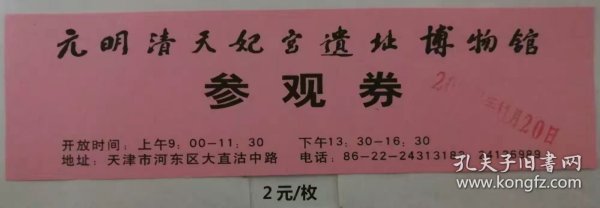 元明清天妃宫遗址博物馆
参观券
开放时间：上午9：00-11：30 下午13：30-16：30
地址：天津市河东区大直沽中路 电话：86-22-24313182
11月20日
孔夫子旧书网
www.kongfz.com
2元/枚